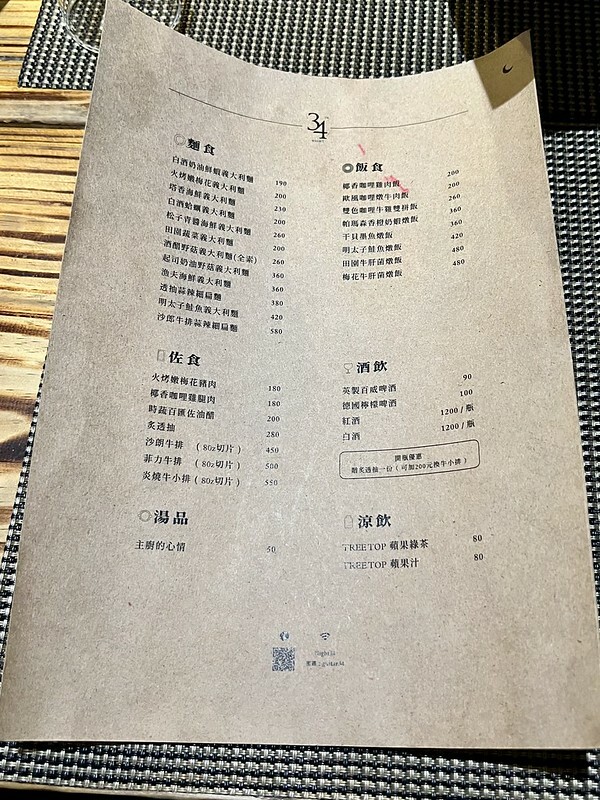 34
麵食
白酒奶油鮮蝦義大利麵 190
火烤嫩梅花義大利麵 200
塔香海鮮義大利麵 230
白酒蛤蠣義大利麵 200
松子青醬海鮮義大利麵 260
田園蔬菜義大利麵 200
酒醋野菇義大利麵(全素) 260
起司奶油野菇義大利麵 360
漁夫海鮮義大利麵 360
透抽蒜辣細扁麵 380
明太子鮭魚義大利麵 420
沙郎牛排蒜辣細扁麵 580
飯食
椰香咖哩雞肉飯 200
歐風咖哩燉牛肉飯 200
雙色咖哩牛雞雙拼飯 260
帕瑪森香橙奶蝦燉飯 360
干貝墨魚燉飯 360
明太子鮭魚燉飯 420
田園牛肝菌燉飯 480
梅花牛肝菌燉飯 480
佐食
火烤嫩梅花豬肉 180
椰香咖哩雞腿肉 180
時蔬百匯佐油醋 200
炙透抽 280
沙朗牛排 (8oz切片) 450
菲力牛排 (8oz切片) 500
炎燒牛小排 (8oz切片) 550
酒飲
英製百威啤酒 90
德國檸檬啤酒 100
紅酒 1200 / 瓶
白酒 1200 / 瓶
開瓶優惠
贈炙透抽一份 ( 可加200元換牛小排 )
湯品
主廚的心情 50
涼飲
TREETOP 蘋果綠茶 80
TREETOP 蘋果汁 80